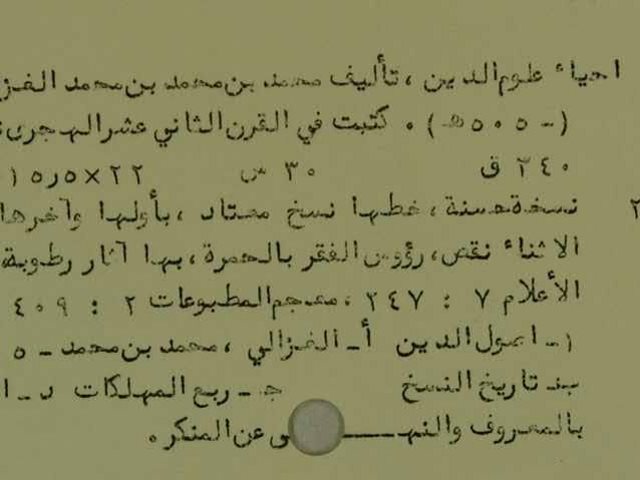 احياء علوم الدين ، تأليف محمد بن محمد بن محمد الغز
( - ٥٠٥ هـ ) . كتبت في القرن الثاني عشر الهجري
٢٤٠ ق ٣٠ س ٢٢×١٥٫٥
٢ نسخة حسنة ، خطها نسخ معتاد ، بأولها وآخرها
الاثناء نقص ، رؤوس الفقر بالحمرة ، بها آثار رطوبة
الأعلام ٧ : ٢٤٧ ، معجم المطبوعات ٢ : ٤٠٩
١- اصول الدين أ- الغزالي ، محمد بن محمد - ٥
ب- تاريخ النسخ ج- ربع المهلكات د- ا
بالمعروف والنهـى عن المنكر .